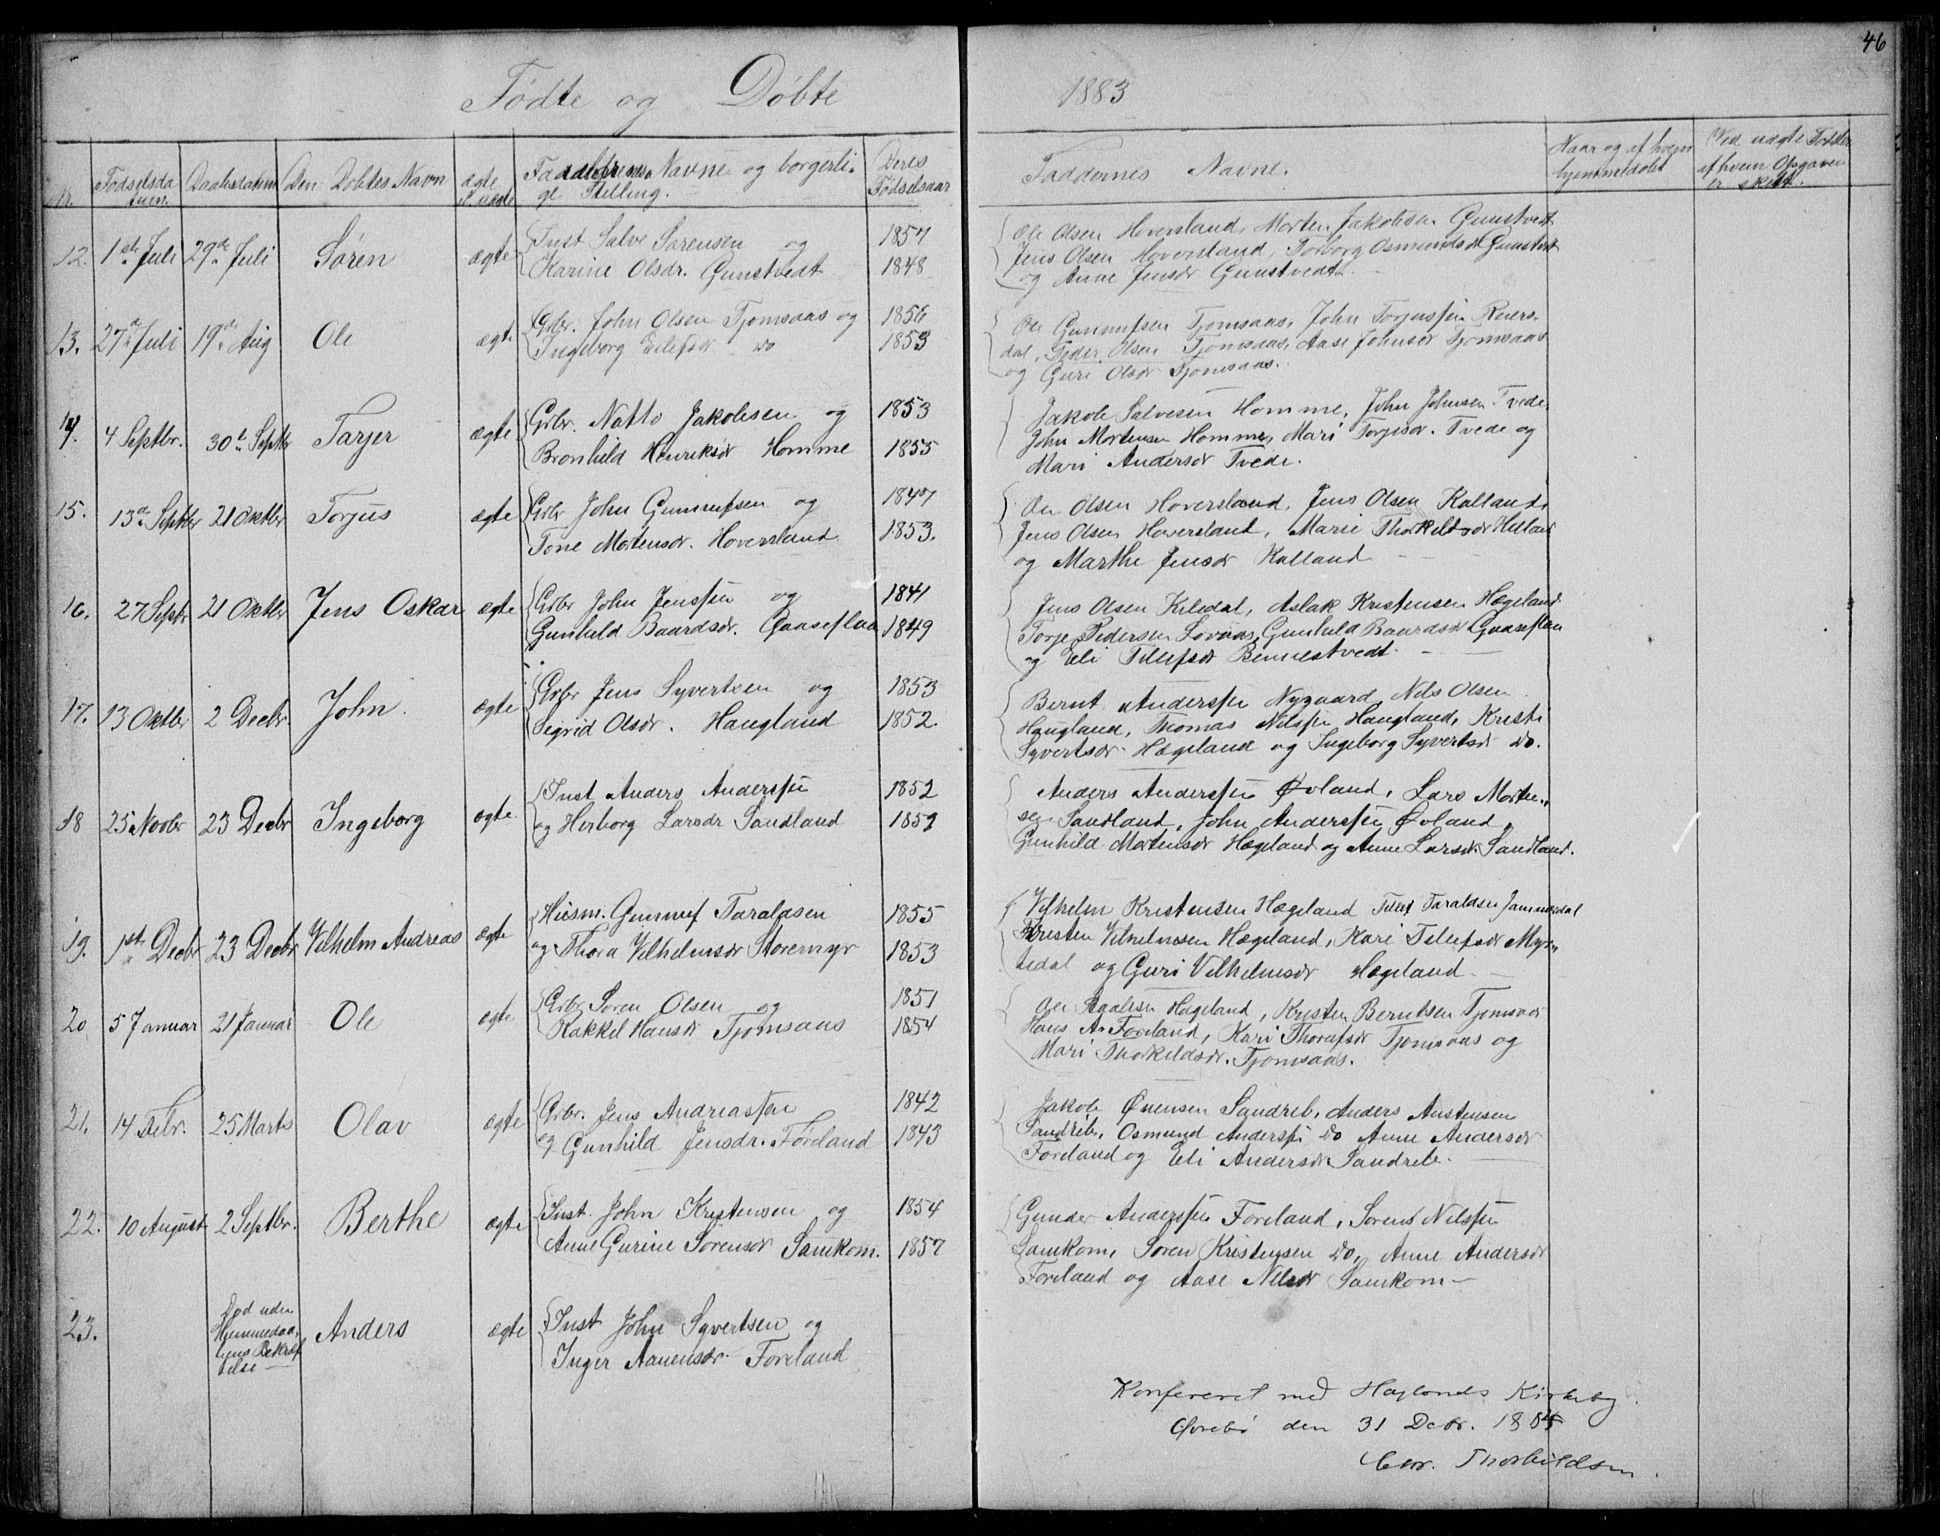 46
Fødte og Døbte 1883
Nr. Fødselsdatum. Daabsdatum Den Døbtes Navn ægte el. uægte Forældrenes Navne og borgerlige Stilling. Deres Fødselsaar Faddernes Navne. Naar og af hvem hjemmedøbt Ved uægte Fødsler af hvem Opgaven er skedt.
12. 1ste Juli 29de Juli Søren ægte Inst Salve Sørensen og 1857
Karine Olsdr. Gunstvedt 1848
Ole Olsen Hoversland, Morten Jakobsen Gunstvedt
Jens Olsen Hoversland, Torborg Osmundsdr Gunstvedt
og Anne Jensdr Gunstvedt.
13. 27de Juli 19de Aug Ole ægte Grbr. John Olsen Tjomsaas og 1856
Ingeborg Eilefsdr do 1853
Ole Gunnufsen Tjomsaas, John Torjussen Roiers-
dal, Peder Olsen Tjomsaas, Aase Johnsdr Tjomsaas
og Guri Olsdr Tjomsaas.
14. 4 Septbr. 30te Septbr Tarjer ægte Grbr. Notto Jakobsen og 1853
Bronhild Henriksdr Homme 1855
Jakob Salvesen Homme, John Johnsen Tvede,
John Mortensen Homme, Mari Torjesdr. Tvede og
Mari Andersdr Tvede.
15. 13de Septbr 21 Oktbr Torjus ægte Grbr John Gunnufsen og 1847
Tone Mortensdr. Hoversland 1853.
Ole Olsen Hoversland, Jens Olsen Kalland,
Jens Olsen Hoversland, Marie Thorkeldsdr Hisland
og Marthe Jensdr Kalland
16. 27 Septr 21 Oktbr Jens Oskar ægte Grbr John Jenssen og 1841
Gunhild Baardsdr. Gaaseflaa 1849
Jens Olsen Kiledal, Aslak Kristensen Hægeland
Torje Pedersen Lovaas, Gunhild Baardsdr Gaaseflaa
og Eli Tellefsdr Bennestvedt.
17. 13 Oktbr 2 Decbr John. ægte Grbr Jens Syvertsen og 1853
Sigrid Olsdr. Haugland 1852.
Bernt Anderssen Nygaard, Nels Olsen
Haugland, Thomas Nilssen Haugland, Kristi
Syvertsdr Hægeland og Ingeborg Syvertsdr do.
18 25 Novbr 23 Decbr Ingeborg ægte Inst Anders Anderssen 1852
og Herborg Larsdr Sandland 1852
Anders Anderssen Øvland, Lars Morten-
sen Sandland, John Anderssen Øvland,
Gunhild Mortensdr Hægeland og Anne Larsdr Sandland.
19. 1ste Decbr 23 Decbr Vilhelm Andreas ægte Husm. Gunnuf Taraldsen 1855
og Thora Vilhelmsdr Storemyr 1853
Vilhelm Kristensen Hægeland Tellef Taraldsen
Kristen Vilhelmsen Hægeland, Kari Tellefsdr
og Guri Vilhelmsdr Hægeland
20 5 Januar 21 Januar Ole ægte Grbr Søren Olsen og 1851
Rakkel Hansdr Tjomsaas 1854
Ole Hægeland, Kristen Berntsen Tjomsaas
Hans A. Foreland, Kari Tjomsaas og
Mari Thorkeldsdr. Tjomsaas.
21. 14 Febr. 25 Marts Olav ægte Grbr. Jens Andreassen 1842
og Gunhild Jensdr. Føreland 1843
Jakob Ønensen Sandreb, Anders Austensen
Sandreb, Osmund Anderssen do Anne Andersdr
Foreland og Eli Andersdr Sandreb.
22. 10 August 2 Septbr. Berthe ægte Inst. John Kristensen og 1854
Anne Gurine Sørensdr Samkom. 1857
Gunder Anderssen Foreland, Sørens Nilssen
Samkom, Søren Kristensen do, Anne Andersdr
Foreland og Aase Nilsdr Samkom
23. Død uden
Hjemmedaa-
bens Bekræf-
telse Anders ægte Inst John Syvertsen og
Inger Aanensdr. Foreland
Konfereret med Hægelands Kirkebog.
Øvrebø den 31 Decbr. 1884
Chr. Thorkildsen.